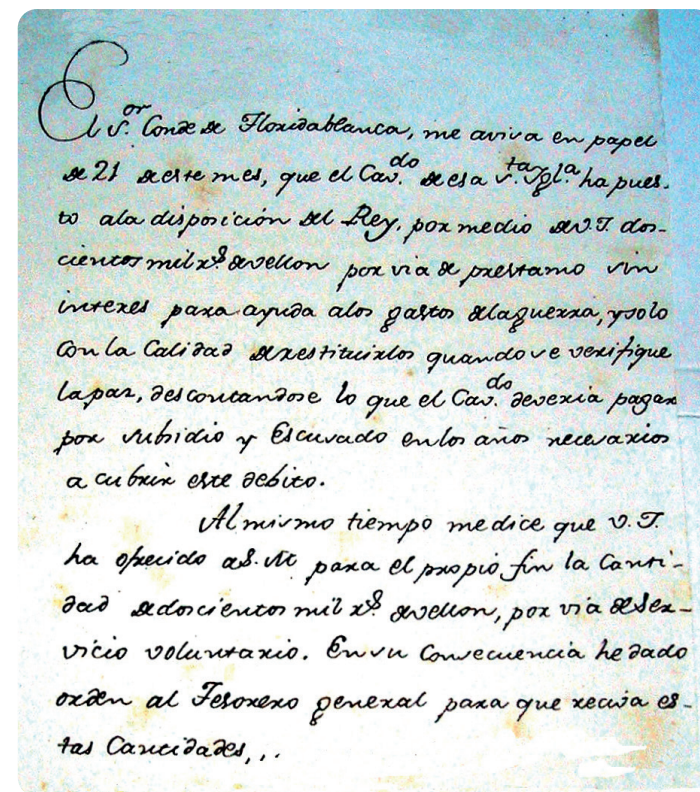 El S.or Conde de Floridablanca, me avisa en papel
de 21 de este mes, que el Cav.do de esa S.ta Ygl.a ha pues-
to ala disposición del Rey, por medio de V.I. dos-
cientos mil r.s de vellon por via de prestamo sin
interes para ayuda alos gastos dela guerra, y solo
con la Calidad de restituirlos quando se verifique
la paz, descontandose lo que el Cav.do deveria pagar
por subsidio y Escusado en los años necesarios
a cubrir este debito.
Al mismo tiempo me dice que V.I.
ha ofrecido a S.M para el propio fin la Canti-
dad de doscientos mil r.s de vellon, por via de Ser-
vicio voluntario. En su Consecuencia he dado
orden al Tesorero general para que reciva es-
tas Cantidades,..